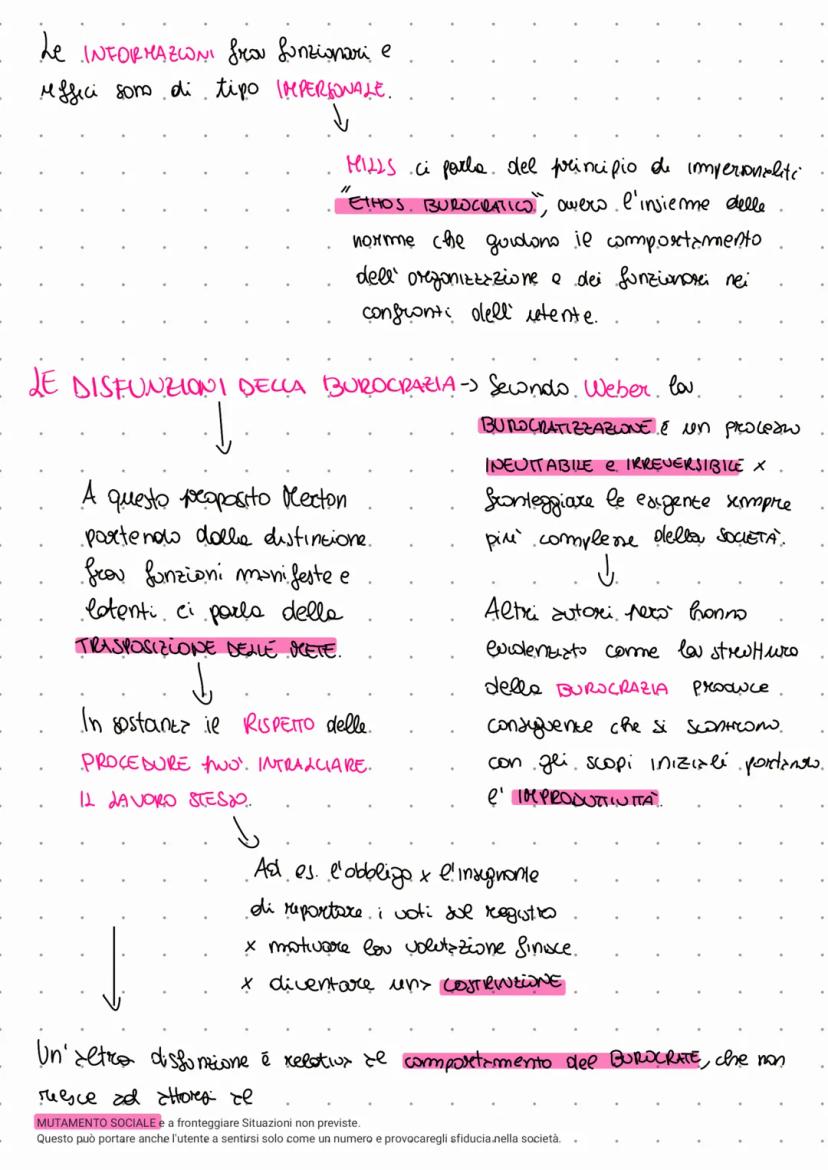 Le INFORMAZIONI fra funzionari e
uffici sono di tipo IMPERSONALE.
↓
MILLS ci parla del principio di impersonalità
"ETHOS BUROCRATICO", ovvero l'insieme delle
norme che guidano il comportamento
dell'organizzazione e dei funzionari nei
confronti dell'utente.
LE DISFUNZIONI DELLA BUROCRAZIA -> Secondo Weber la
BUROCRATIZZAZIONE è un processo
INEVITABILE e IRREVERSIBILE x
fronteggiare le esigenze sempre
più complesse della SOCIETÀ.
↓
Altri autori però hanno
evidenziato come la struttura
della BUROCRAZIA produce
conseguenze che si scontrano
con gli scopi iniziali portando
l'IMPRODUTTIVITÀ.
↓
A questo proposito Merton
partendo dalla distinzione
fra funzioni manifeste e
latenti ci parla della
TRASPOSIZIONE DELLE METE.
↓
In sostanza il RISPETTO delle
PROCEDURE può INTRALCIARE
IL LAVORO STESSO.
↓
Ad es. l'obbligo x l'insegnante
di riportare i voti sul registro
x motivare la valutazione finisce
x diventare una COSTRIZIONE
↓
Un'altra disfunzione è relativa al comportamento del BUROCRATE, che non
riesce ad attorsi al
MUTAMENTO SOCIALE e a fronteggiare Situazioni non previste.
Questo può portare anche l'utente a sentirsi solo come un numero e provocaregli sfiducia nella società.